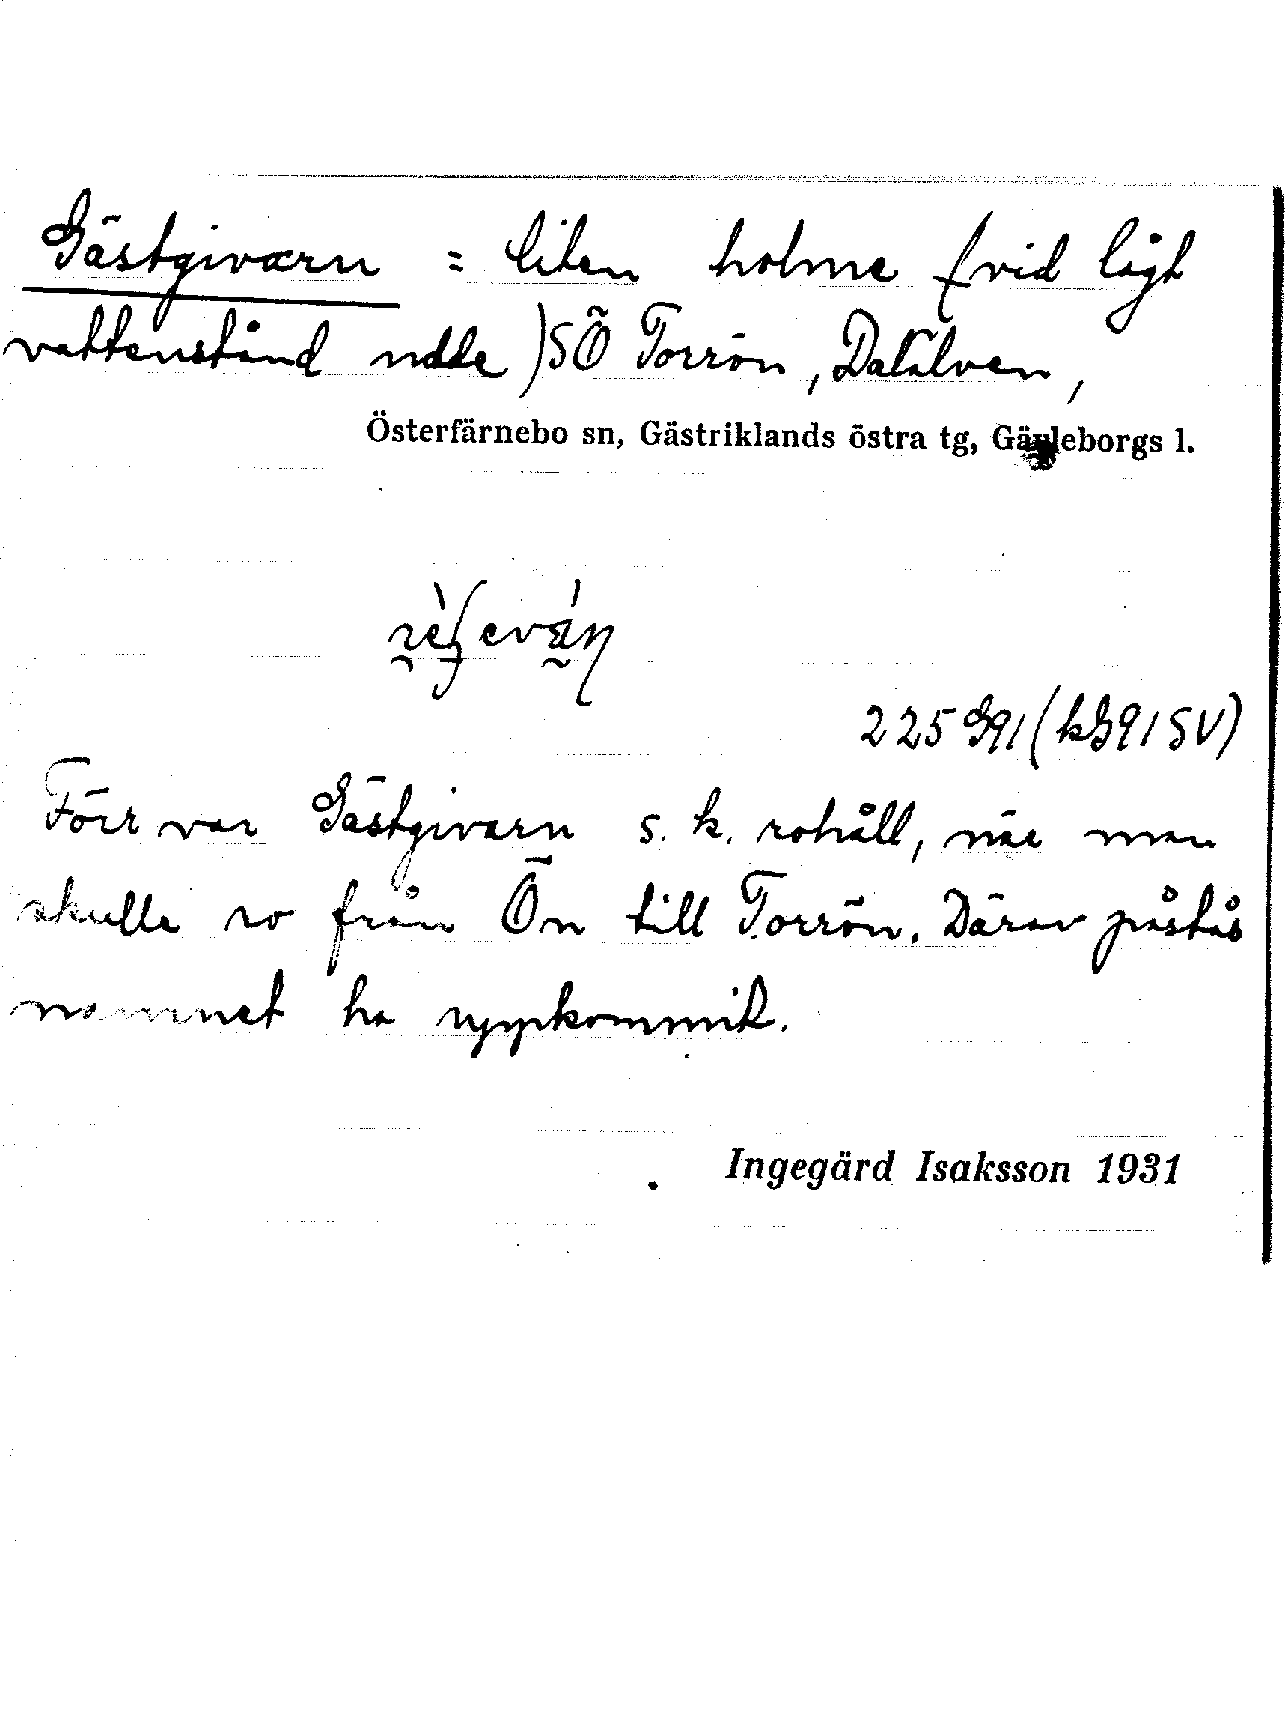 Gästgivarn = liten holme (vid lågt
vattenstånd udde) SÖ Torrön, Dalälven,
Österfärnebo sn, Gästriklands östra tg, Gävleborgs l.
225 G91 (kG91SV)
Förr var Gästgivarn s. k. rohåll, när man
skulle ro från Ön till Torrön. Därav påstås
namnet ha uppkommit.
Ingegärd Isaksson 1931